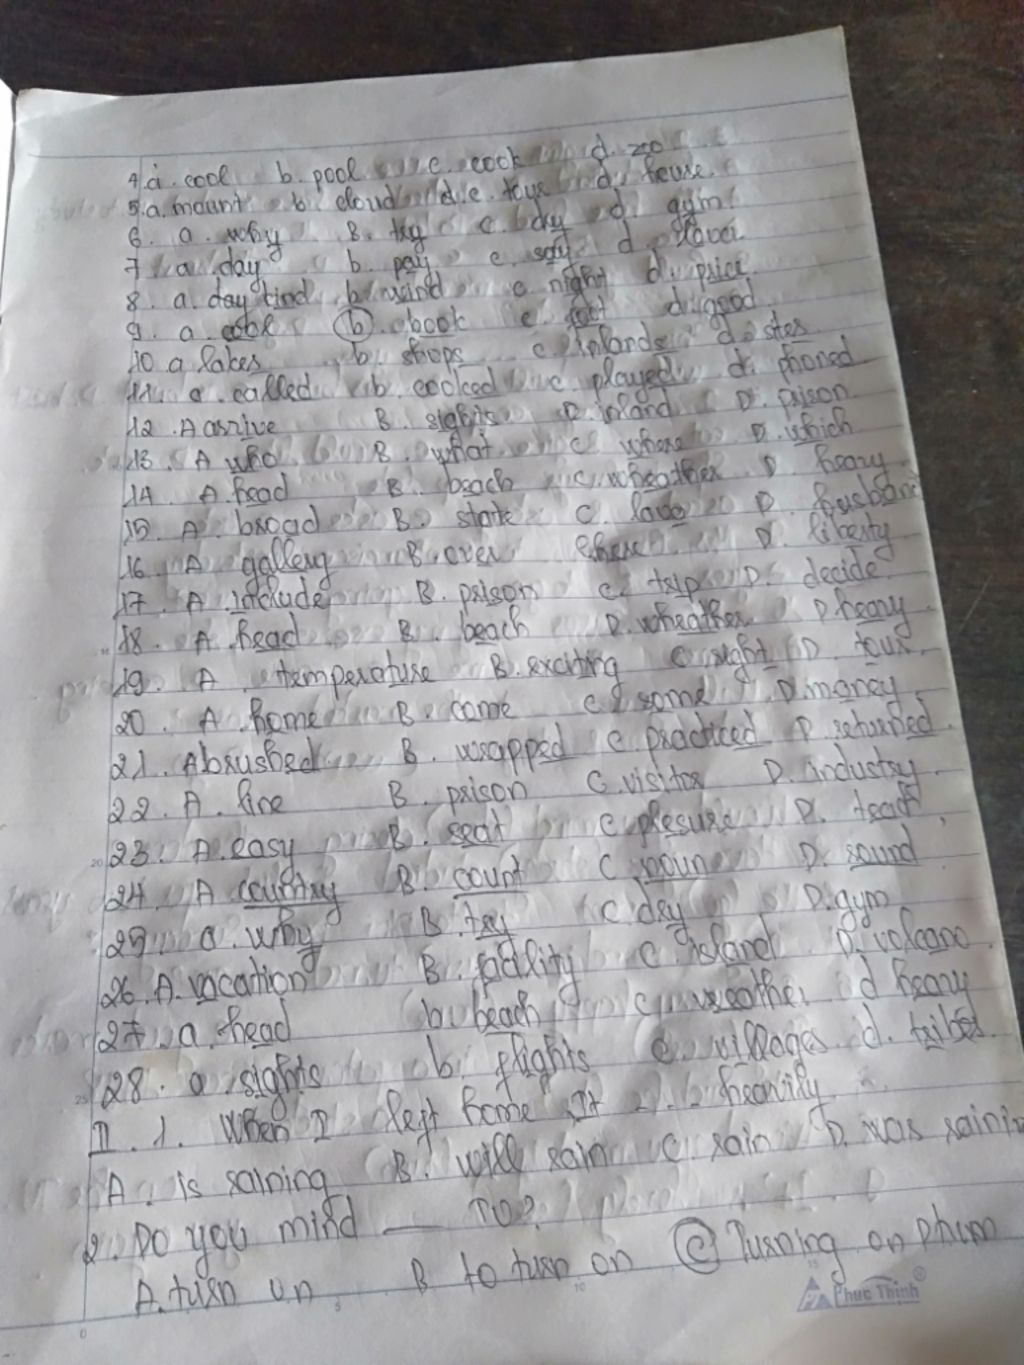 4. a. cool b. pool c. cook d. zoo
5. a. mount b. cloud c. tour d. house
6. a. why B. try c. dry d. gym
7 a day b. pay c. say d.
8. a. day kind b. wind c. night d. price
9. a. cool b. book c foot d. good
10 a lakes b. shops c. inlands d. sites
11. a. called b. cooked c. played d. phoned
12. A arrive B. sights D. inland D. prison
13. A who B. what C. where D. which
14. A. head B. beach C. wheather D heavy
15. A. broad B. state C. lava D. husband
16. A gallery B. over there D. liberty
17. A. include B. prison C. trip D. decide
18. A. head B. beach D. wheather D heavy
19. A. temperature B. exciting C sight D. tour.
20. A. home B. come C some D. money
21. A brushed B. wrapped C practiced D. returned
22. A. line B. prison C. visitor D. industry
23. A. easy B. seat C plesure D. teach
24. A country B. count C noun D. sound
25. a. why B. try C dry D. gym
26. A. vacation B. facility C island D. volcano
27. a. head b. beach c. weather d heavy
28. a. sights b. flights c. villages d. tribes
II. 1. When I left home It ... heavily
A. is raining B. will rain C rain D. was raining
2. Do you mind ___
A. turn on B to turn on C Turning on phim
Phuc Thinh